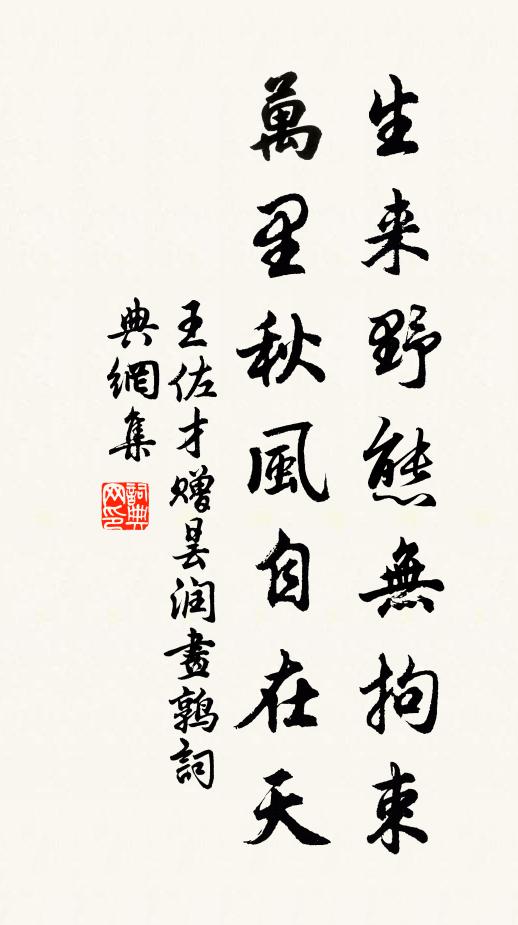 生来野態無拘束
萬里秋風自在天
王佐才贈曇润畫鶉詞
典網集
詞典網印